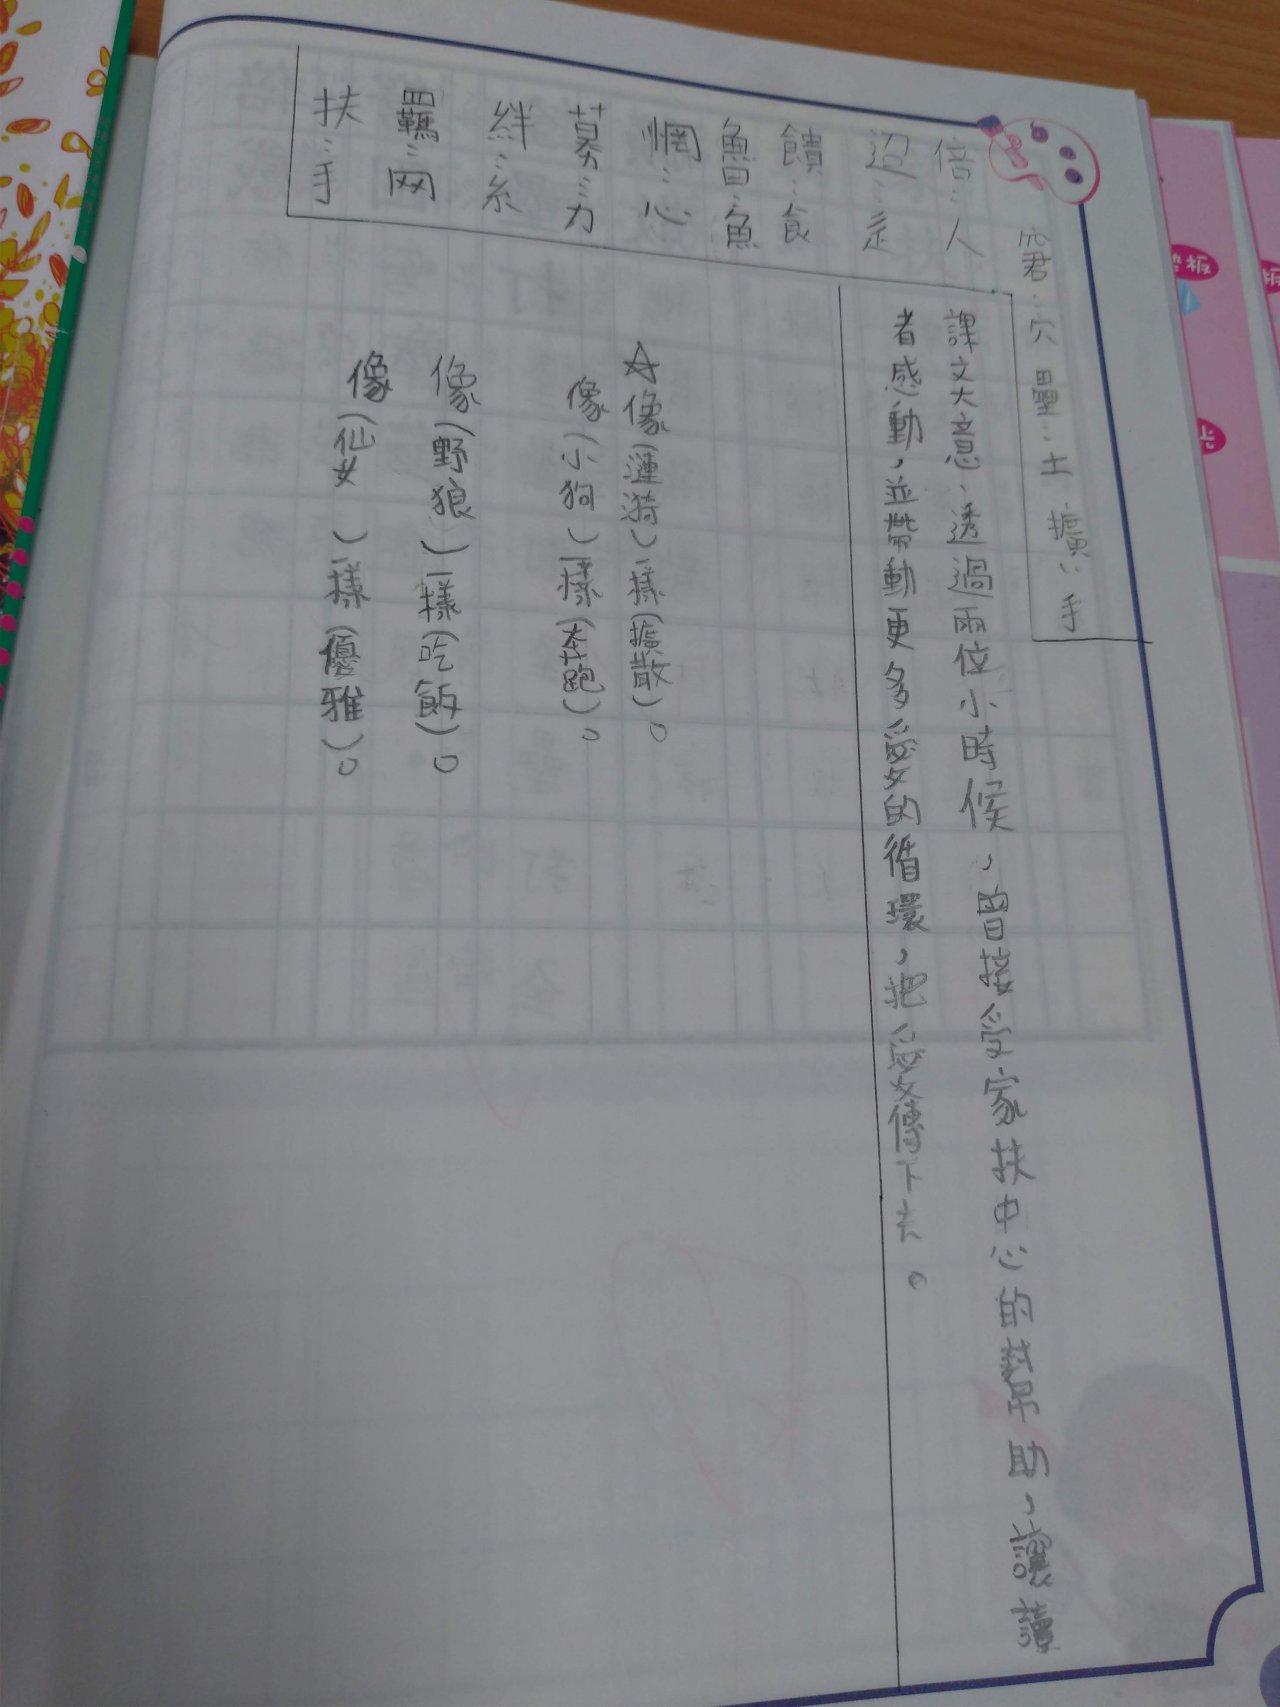 窘：穴 壘：土 擴：手
倍：人
迢：辵
饋：食
魯：魚
惘：心
募：力
絆：糸
羈：网
扶：手
課文大意、透過兩位小時候，曾接受家扶中心的幫助，讓讀
者感動，並帶動更多愛的循環，把愛傳下去。
☆像(漣漪)一樣(擴散)。
像(小狗)一樣(奔跑)。
像(野狼)一樣(吃飯)。
像(仙女)一樣(優雅)。
墊板
卡
板